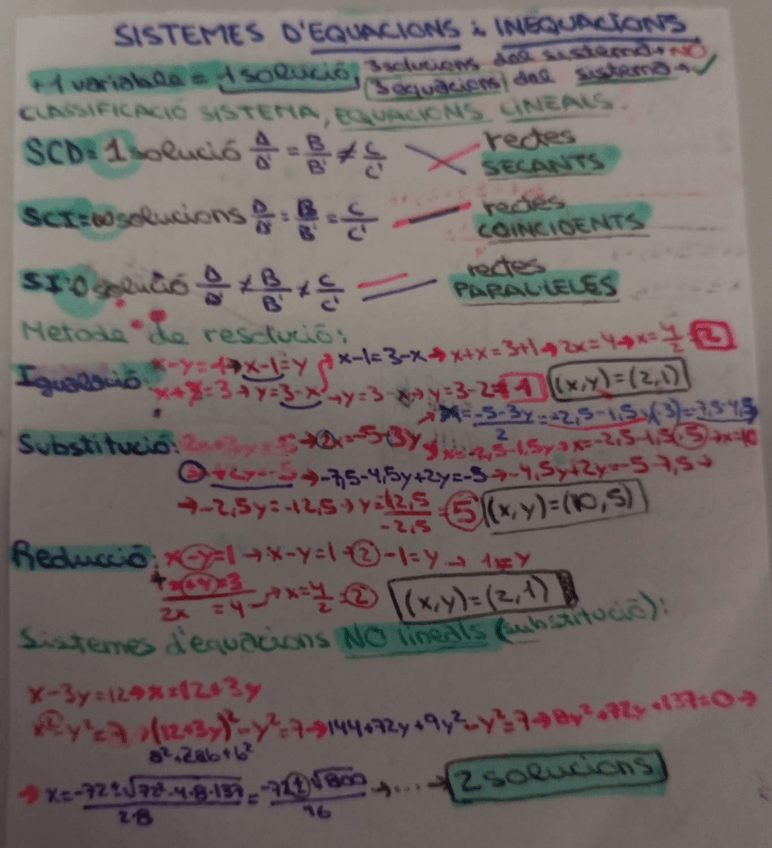 SISTEMES D'EQUACIONS i INEQUACIONS
+1 variable = 1 solució, 3 solucions del sistema → NO
3 equacions del sistema → ✓
CLASSIFICACIÓ SISTEMA, EQUACIONS LINEALS.
SCD = 1 solució A/A' = B/B' ≠ C/C' rectes
SECANTS
SCI = ∞ solucions A/A' = B/B' = C/C' rectes
COINCIDENTS
SI = 0 solució A/A' ≠ B/B' ≠ C/C' rectes
PARAL·LELES
Metode de resolució:
Igualació: x-y=1 → x-1=y → x-1=3-x → x+x=3+1 → 2x=4 → x=4/2=2
x+y=3 → y=3-x → y=3-x → y=3-2=1 (x,y)=(2,1)
-5-3y/2 = -2,5-1,5y
Substitució: → 2x=-5-3y x=-2,5-1,5y → x=-2,5-1,5·5 → x=10
+2y=-5 → -7,5-4,5y+2y=-5 → -4,5y+2y=-5-7,5 →
→ -2,5y=-12,5 → y=12,5/-2,5=5 (x,y)=(10,5)
Reducció: x-y=1 → x-y=1 → 2-1=y → 1=y
+x+y=3
2x =4 → x=4/2=2 (x,y)=(2,1)
Sistemes d'equacions NO lineals (substitució):
x-3y=12 → x=12+3y
x²-y²=7 → (12+3y)²-y²=7 → 144+72y+9y²-y²=7 → 8y²+72y+137=0 →
a²+2ab+b²
→ x=-72±√72²-4·8·137/2·8 = -72±√800/16 → ... → 2 solucions